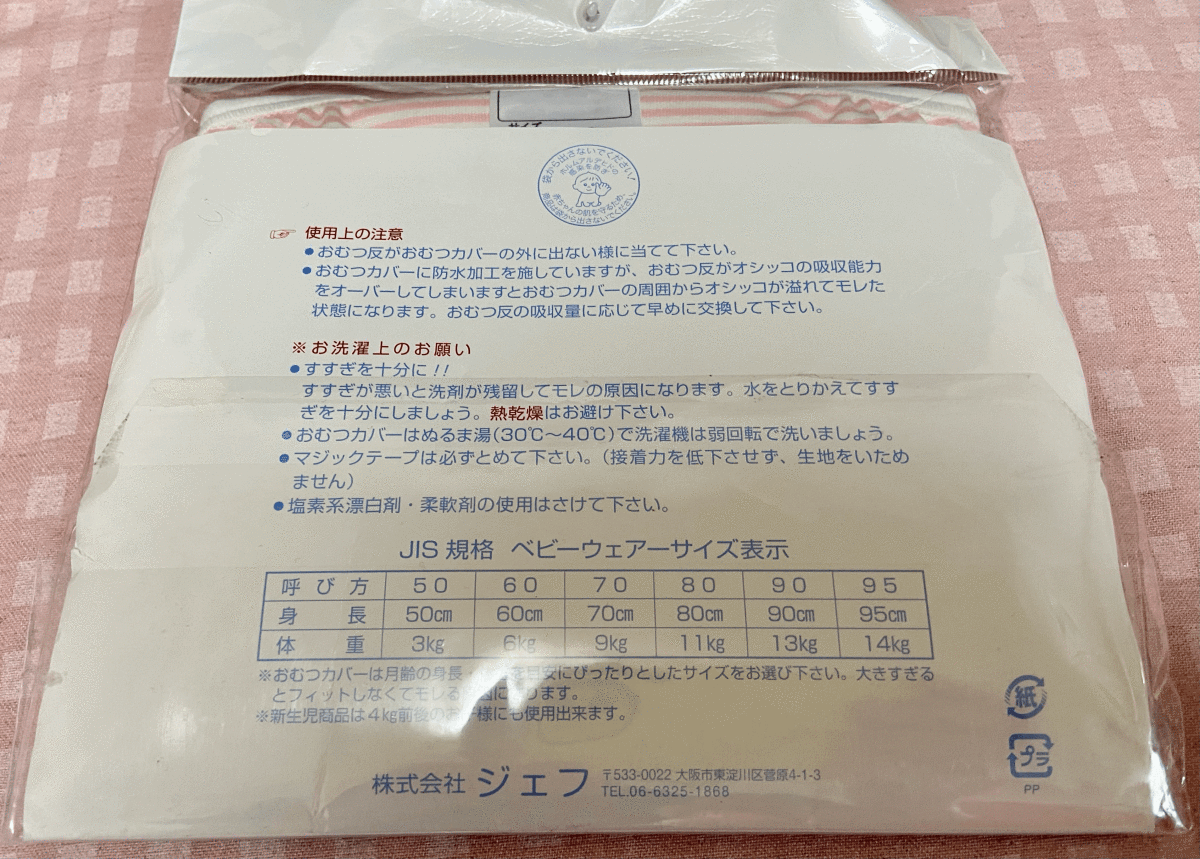 サイズ
袋から出さないでください!
ホルムアルデヒドの
感染を防ぎ
赤ちゃんの肌を守るため、
商品は袋から出さないでください。
☞ 使用上の注意
●おむつ反がおむつカバーの外に出ない様に当てて下さい。
●おむつカバーに防水加工を施していますが、おむつ反がオシッコの吸収能力
をオーバーしてしまいますとおむつカバーの周囲からオシッコが溢れてモレた
状態になります。おむつ反の吸収量に応じて早めに交換して下さい。
※お洗濯上のお願い
●すすぎを十分に!!
すすぎが悪いと洗剤が残留してモレの原因になります。水をとりかえてすす
ぎを十分にしましょう。熱乾燥はお避け下さい。
●おむつカバーはぬるま湯(30℃～40℃)で洗濯機は弱回転で洗いましょう。
●マジックテープは必ずとめて下さい。(接着力を低下させず、生地をいため
ません)
●塩素系漂白剤・柔軟剤の使用はさけて下さい。
JIS 規格 ベビーウェアーサイズ表示
呼び方 50 60 70 80 90 95
身長 50cm 60cm 70cm 80cm 90cm 95cm
体重 3kg 6kg 9kg 11kg 13kg 14kg
※おむつカバーは月齢の身長・を目安にぴったりとしたサイズをお選び下さい。大きすぎる
とフィットしなくてモレる因になります。
※新生児商品は4kg前後のお子様にも使用出来ます。
紙
プラ
PP
株式会社 ジェフ 〒533-0022 大阪市東淀川区菅原4-1-3
TEL.06-6325-1868